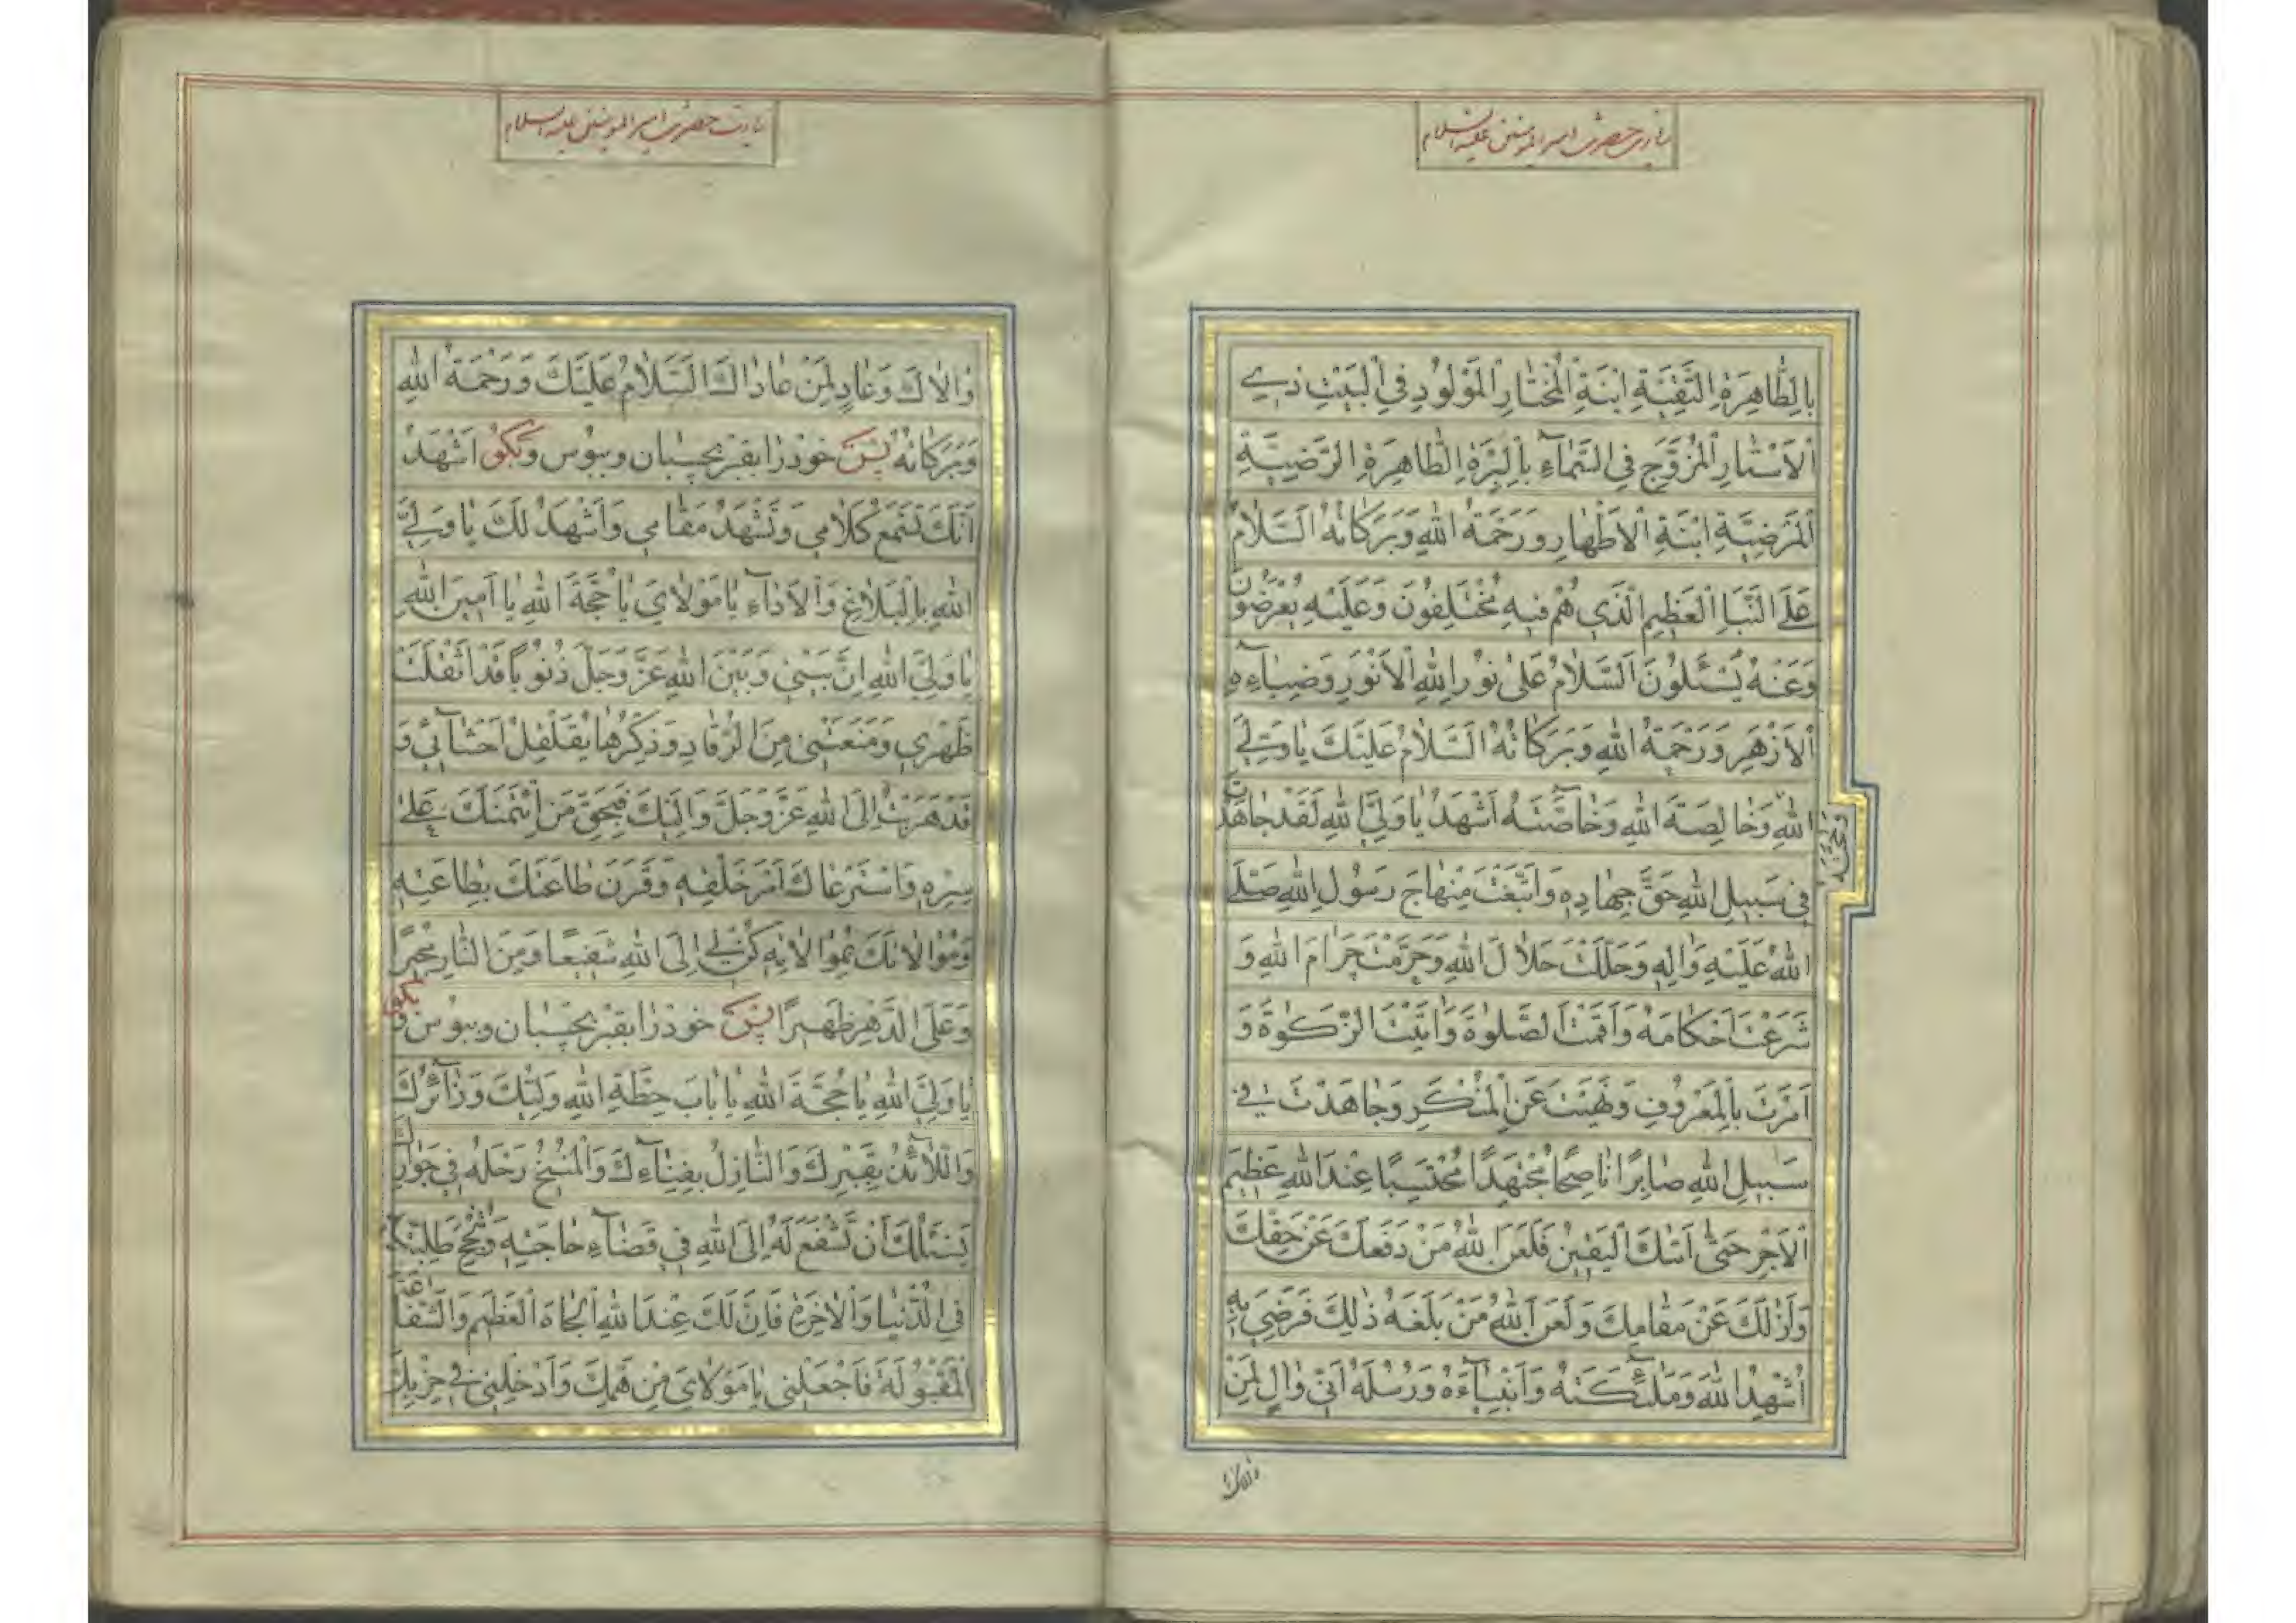 زیارت حضرت امیرالمؤمنین علیه السلام
بِالطَّاهِرَةِ التَّقِيَّةِ ابْنَةِ الْمُخْتَارِ الْمَوْلُودِ فِي الْبَيْتِ ذِي
الْأَسْتَارِ الْمُزَوَّجِ فِي السَّمَآءِ بِالْبَرَّةِ الطَّاهِرَةِ الرَّضِيَّةِ
الْمَرْضِيَّةِ ابْنَةِ الْأَطْهَارِ وَرَحْمَةُ اللهِ وَبَرَكَاتُهُ اَلسَّلَامُ
عَلَى النَّبَإِ الْعَظِيمِ الَّذِي هُمْ فِيهِ مُخْتَلِفُونَ وَعَلَيْهِ يُعْرَضُونَ
وَعَنْهُ يُسْئَلُونَ اَلسَّلَامُ عَلَى نُورِ اللهِ الْأَنْوَرِ وَضِيَآءِهِ
الْأَزْهَرِ وَرَحْمَةُ اللهِ وَبَرَكَاتُهُ اَلسَّلَامُ عَلَيْكَ يَا وَلِيَّ
اللهِ وَخَالِصَةَ اللهِ وَخَاصَّتَهُ اَشْهَدُ يَا وَلِيَّ اللهِ لَقَدْ جَاهَدْتَ
وَحُجَّتَهُ
فِي سَبِيلِ اللهِ حَقَّ جِهَادِهِ وَاتَّبَعْتَ مِنْهَاجَ رَسُولِ اللهِ صَلَّى
اللهُ عَلَيْهِ وَآلِهِ وَحَلَّلْتَ حَلَالَ اللهِ وَحَرَّمْتَ حَرَامَ اللهِ وَ
شَرَعْتَ اَحْكَامَهُ وَاَقَمْتَ الصَّلٰوةَ وَاٰتَيْتَ الزَّكٰوةَ وَ
اَمَرْتَ بِالْمَعْرُوفِ وَنَهَيْتَ عَنِ الْمُنْكَرِ وَجَاهَدْتَ فِي
سَبِيلِ اللهِ صَابِرًا نَاصِحًا مُجْتَهِدًا مُحْتَسِبًا عِنْدَ اللهِ عَظِيمَ
الْأَجْرِ حَتَّى اَتٰكَ الْيَقِينُ فَلَعَنَ اللهُ مَنْ دَفَعَكَ عَنْ حَقِّكَ
وَاَزَالَكَ عَنْ مَقَامِكَ وَلَعَنَ اللهُ مَنْ بَلَغَهُ ذٰلِكَ فَرَضِيَ بِهِ
اُشْهِدُ اللهَ وَمَلٰٓئِكَتَهُ وَاَنْبِيَآءَهُ وَرُسُلَهُ اَنِّي وَالٍ لِمَنْ
والاك
زیارت حضرت امیرالمؤمنین علیه السلام
وَالَاكَ وَعَادٍ لِمَنْ عَادَاكَ اَلسَّلَامُ عَلَيْكَ وَرَحْمَةُ اللهِ
وَبَرَكَاتُهُ پس خود را بقبر بچسبان و ببوس و بگو اَشْهَدُ
اَنَّكَ تَسْمَعُ كَلَامِي وَتَشْهَدُ مَقَامِي وَاَشْهَدُ لَكَ يَا وَلِيَّ
اللهِ بِالْبَلَاغِ وَالْأَدَآءِ يَا مَوْلَايَ يَا حُجَّةَ اللهِ يَا اَمِينَ اللهِ
يَا وَلِيَّ اللهِ اِنَّ بَيْنِي وَبَيْنَ اللهِ عَزَّ وَجَلَّ ذُنُوبًا قَدْ اَثْقَلَتْ
ظَهْرِي وَمَنَعَتْنِي مِنَ الرُّقَادِ وَذِكْرُهَا يُقَلْقِلُ اَحْشَآئِي وَ
قَدْ هَرَبْتُ اِلَى اللهِ عَزَّ وَجَلَّ وَاِلَيْكَ فَبِحَقِّ مَنِ ائْتَمَنَكَ عَلَى
سِرِّهِ وَاسْتَرْعَاكَ اَمْرَ خَلْقِهِ وَقَرَنَ طَاعَتَكَ بِطَاعَتِهِ
وَمُوَالَاتَكَ بِمُوَالَاتِهِ كُنْ لِي اِلَى اللهِ شَفِيعًا وَمِنَ النَّارِ مُجِيرًا
وَعَلَى الدَّهْرِ ظَهِيرًا پس خود را بقبر بچسبان و ببوس و بگو
يَا وَلِيَّ اللهِ يَا حُجَّةَ اللهِ يَا بَابَ حِطَّةِ اللهِ وَلِيُّكَ وَزَآئِرُكَ
وَاللَّآئِذُ بِقَبْرِكَ وَالنَّازِلُ بِفِنَآءِكَ وَالْمُنِيخُ رَحْلَهُ فِي جَوَارِكَ
يَسْئَلُكَ اَنْ تَشْفَعَ لَهُ اِلَى اللهِ فِي قَضَآءِ حَاجَتِهِ وَنُجْحِ طَلِبَتِهِ
فِي الدُّنْيَا وَالْآخِرَةِ فَاِنَّ لَكَ عِنْدَ اللهِ الْجَاهَ الْعَظِيمَ وَالشَّفَاعَةَ
الْمَقْبُولَةَ فَاجْعَلْنِي يَا مَوْلَايَ مِنْ هَمِّكَ وَاَدْخِلْنِي فِي حِزْبِكَ